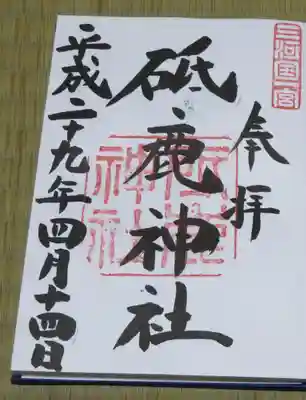 三河国一宮
奉拝
砥鹿神社
砥鹿
神社
平成二十九年四月十四日